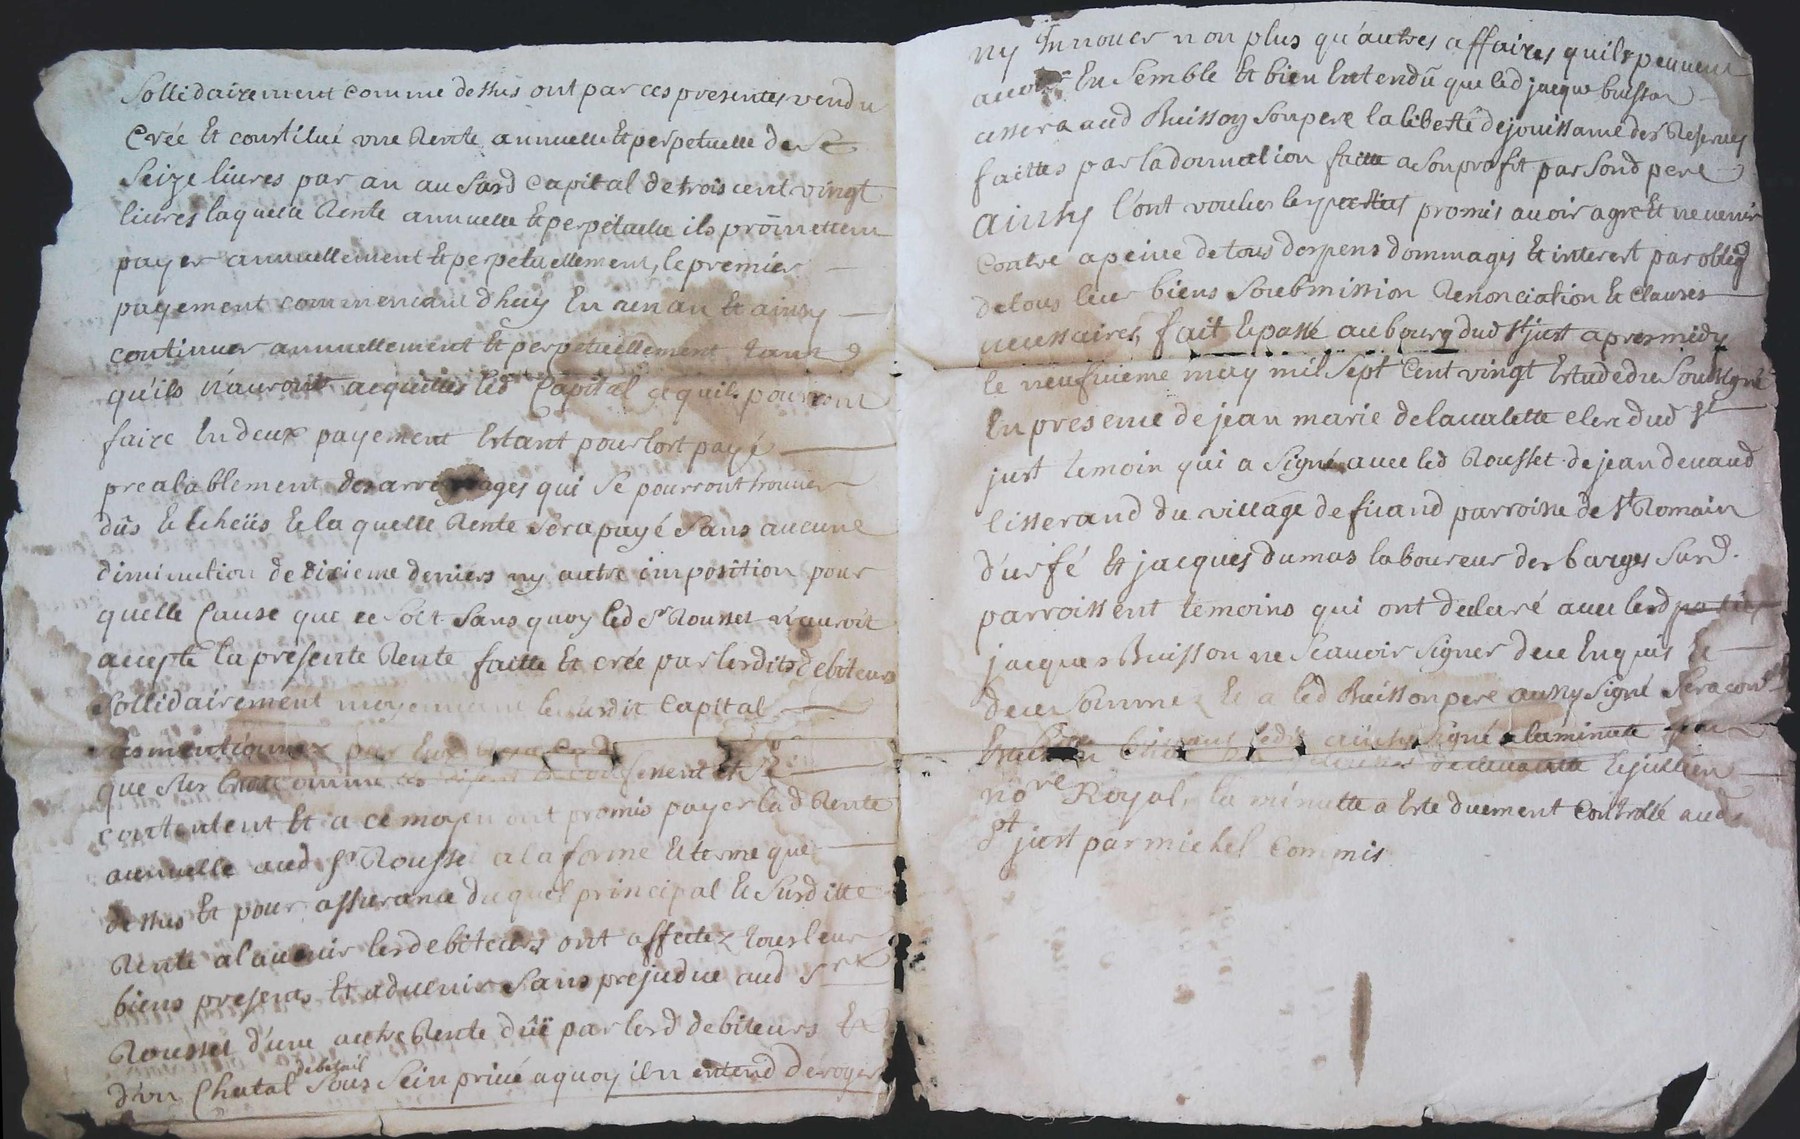 Sollidairement comme dessus ont par ces presentes vendu
Créé Et constitué une Rente annuelle Et perpetuelle de
Seize livres par an au Surd Capital de trois cent vingt
livres laquelle Rente annuelle Et perpetuelle ils promettent
payer annuellement Et perpetuellement, le premier
payement commencant d'huy En un an Et ainsy
continuer annuellement Et perpetuellement tant
qu'ils n'auront acquittes led Capital ce quils pourront
faire En deux payement Estant pour lort payé
prealablement des arreyrages qui se pourront trouver
dûs Et Echeüs Et la quelle Rente sera payé Sans aucune
diminution de dixieme deniers ny autre imposition pour
quelle Cause que ce soit Sans quoy led Sr Rousset n'auroit
accepté la presente Rente faitte Et crée par lesdits debiteurs
Sollidairement moyennant le susdit Capital
mentionnez par
que des Et comme
contentent Et a ce moyen ont promis payer lad Rente
annuelle aud Sr Rousset a la forme Et terme que
dessus Et pour assurance du quel principal Et Surditte
Rente a l'avenir lesd debiteurs ont affectez tous leur
biens presents Et advenir Sans prejudice aud Sr
Rousset d'une autre Rente düe par lesd debiteurs Et
d'un Chatal de betail Sous Sein privé a quoy il n entend deroger
ny Innover non plus qu'autres affaires quils peuvent
avoir Ensemble Et bien Entendû que led jacque buisson
cessera aud Buisson son pere la liberté de jouissance des Reserves
faittes par la donnation faitte a son profit par sond pere
ainsy l'ont voulus les parties promis avoir agré Et ne venir
Contre a peine de tous despens dommages Et interest par oblig
de tous leur biens Soubmission Renonciation Et Clauses
necessaires, fait Et passé au bourg dud St just apres midy
le neufvieme may mil Sept Cent vingt Estude du Soussigné
En presence de jean marie delavalette clerc dud St
just temoin qui a signé avec led Rousset de jean devaud
tisserand du village de ficand parroisse de St Romain
d'urfé Et jacques dumas laboureur des barges Surd
parroissent temoins qui ont declaré avec lesd parties
jacques Buisson ne Scavoir signer de ce Enquis
de ce Sommez Et a led Buisson pere aussy signé Sera cont
ainsy signé a la minute
Et jullien
nore Royal, la minutte a Esté duement Controllé aud
St just par michel Commis